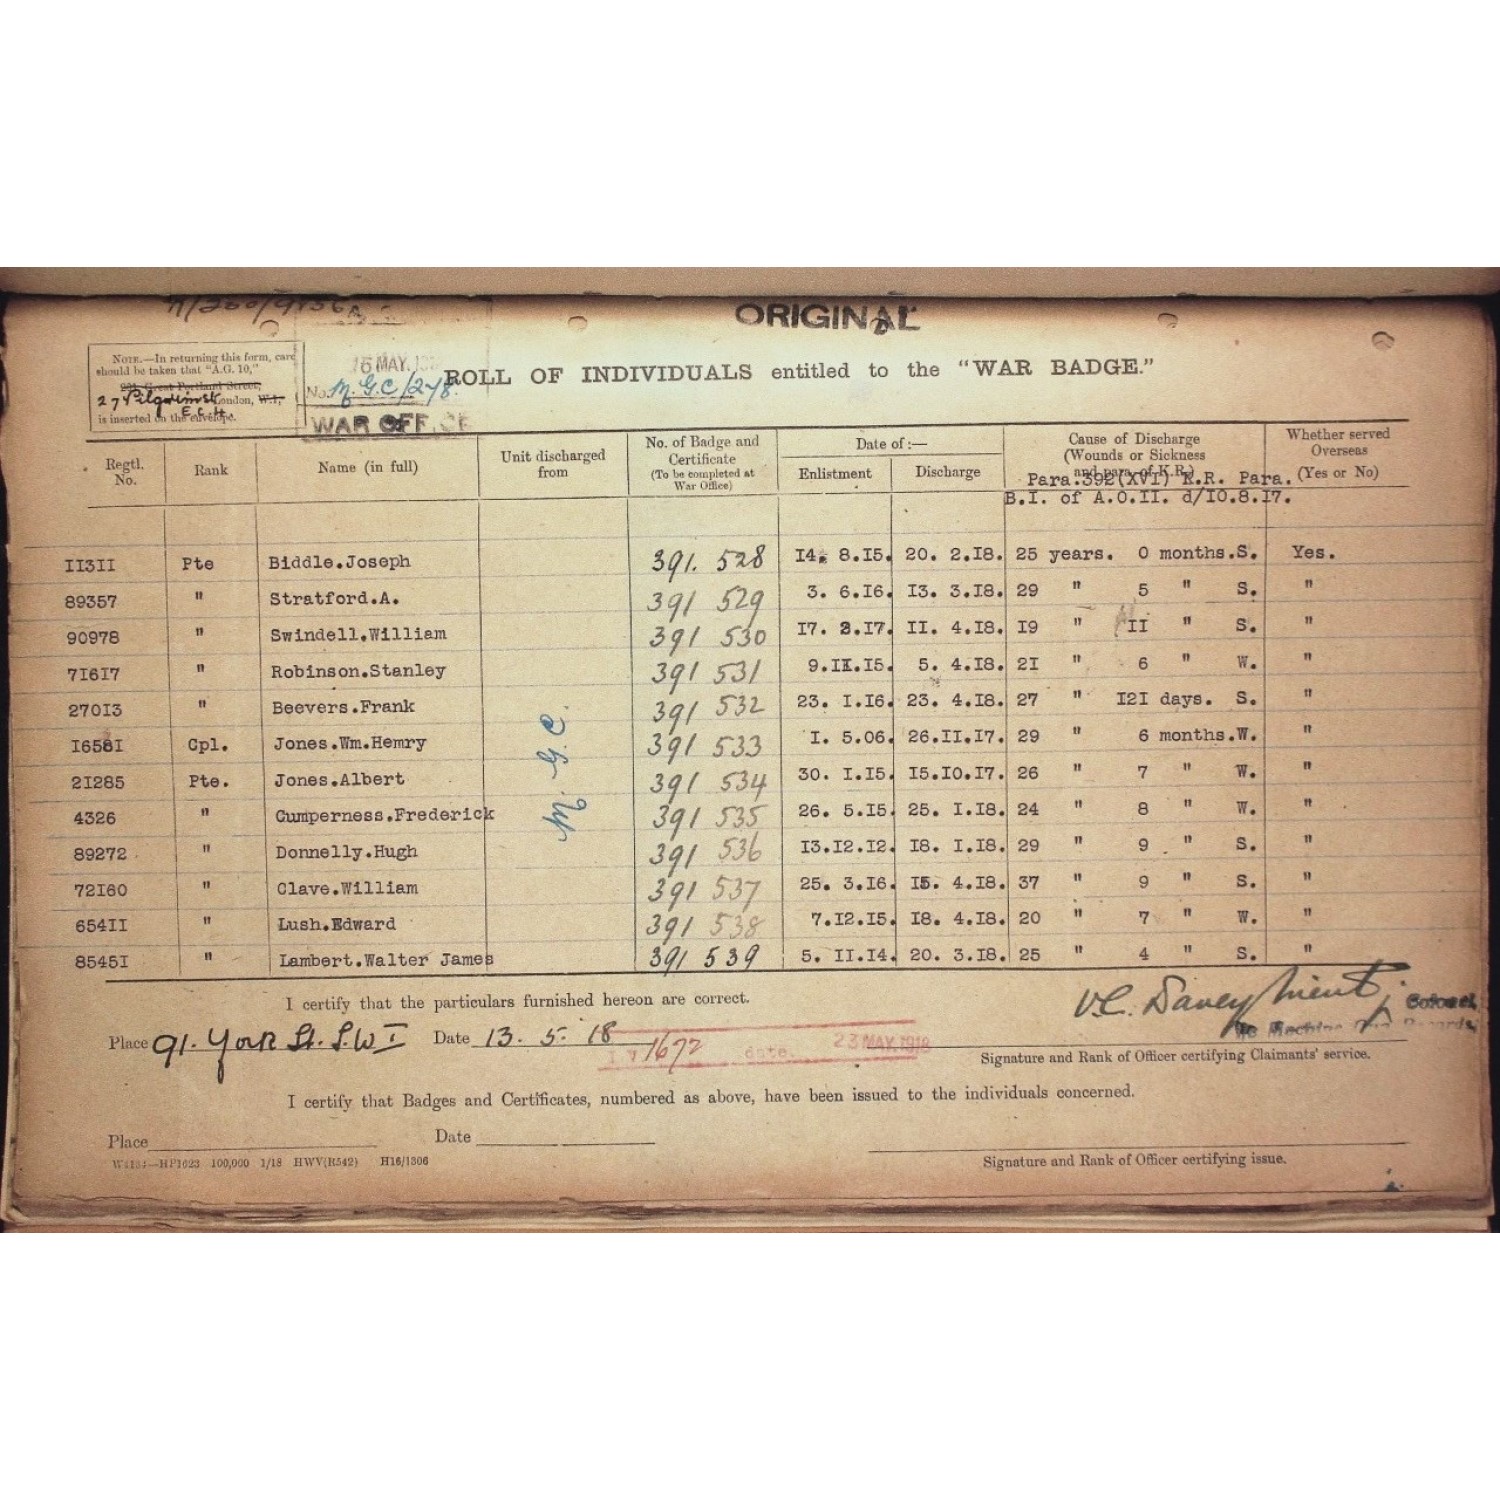 ORIGINAL
NOTE.—In returning this form, care
should be taken that "A.G. 10,"
Great Portland Street,
27 Pilgrim St London, W.1,
E.C.4.
is inserted on the envelope.
16 MAY. 
No. M.G.C/278.
WAR OFFICE
ROLL OF INDIVIDUALS entitled to the "WAR BADGE."
Regtl. No. Rank Name (in full) Unit discharged from No. of Badge and Certificate (To be completed at War Office) Date of:— Enlistment Discharge Cause of Discharge (Wounds or Sickness and para. of K.R.) Whether served Overseas (Yes or No)
Para.392(XVI) K.R. Para.
B.I. of A.O.II. d/IO.8.I7.
II3II Pte Biddle.Joseph 391. 528 I4. 8.I5. 20. 2.I8. 25 years. 0 months.S. Yes.
89357 " Stratford.A. 391 529 3. 6.I6. I3. 3.I8. 29 " 5 " S. "
90978 " Swindell.William 391 530 I7. 2.I7. II. 4.I8. I9 " II " S. "
7I6I7 " Robinson.Stanley 391 531 9.II.I5. 5. 4.I8. 2I " 6 " W. "
270I3 " Beevers.Frank 391 532 23. I.I6. 23. 4.I8. 27 " I2I days. S. "
I658I Cpl. Jones.Wm.Hemry 391 533 I. 5.06. 26.II.I7. 29 " 6 months.W. "
2I285 Pte. Jones.Albert 391 534 30. I.I5. I5.IO.I7. 26 " 7 " W. "
4326 " Cumperness.Frederick 391 535 26. 5.I5. 25. I.I8. 24 " 8 " W. "
89272 " Donnelly.Hugh 391 536 I3.I2.I2. I8. I.I8. 29 " 9 " S. "
72I60 " Clave.William 391 537 25. 3.I6. I5. 4.I8. 37 " 9 " S. "
654II " Lush.Edward 391 538 7.I2.I5. I8. 4.I8. 20 " 7 " W. "
8545I " Lambert.Walter James 391 539 5. II.I4. 20. 3.I8. 25 " 4 " S. "
M. G. C.
I certify that the particulars furnished hereon are correct.
Colonel
Place 91. York St. S.W 1 Date 13. 5. 18
1672 date. 23 MAY.1918
Signature and Rank of Officer certifying Claimants' service.
I certify that Badges and Certificates, numbered as above, have been issued to the individuals concerned.
Place Date
W4134—HP1623 100,000 1/18 HWV(R542) H16/1306
Signature and Rank of Officer certifying issue.